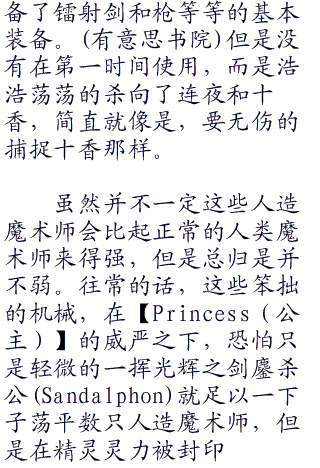 备了镭射剑和枪等等的基本
装备。(有意思书院)但是没
有在第一时间使用，而是浩
浩荡荡的杀向了连夜和十
香，简直就像是，要无伤的
捕捉十香那样。
虽然并不一定这些人造
魔术师会比起正常的人类魔
术师来得强，但是总归是并
不弱。往常的话，这些笨拙
的机械，在【Princess（公
主）】的威严之下，恐怕只
是轻微的一挥光辉之剑鏖杀
公(Sandalphon)就足以一下
子荡平数只人造魔术师，但
是在精灵灵力被封印